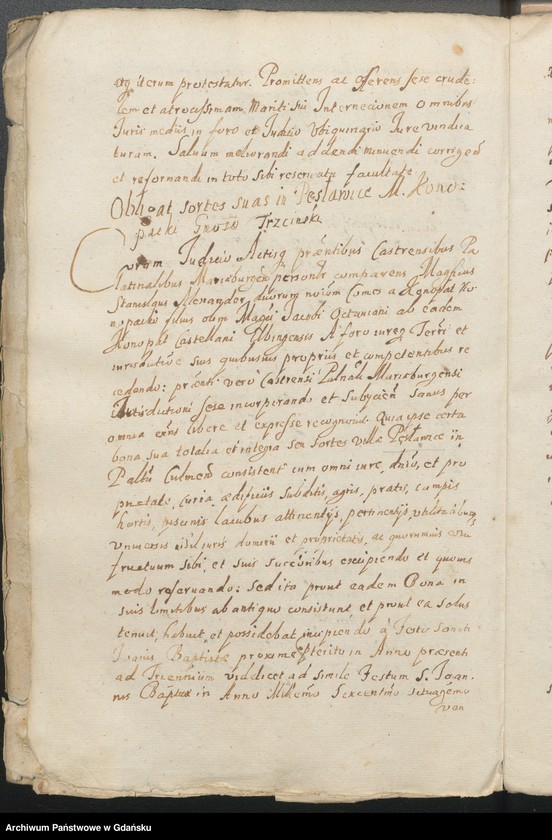 iterum protestatur. Promittens ac offerens sese crude:
lem et atrocissimam Mariti sui Internecionem omnibus
Iuris medijs in foro et Iudicio Ubiquinario Iure vindica
turam. Saluum meliorandi addendi minuendi corrigen̄
et reformandi in toto sibi reservata facultate
Obligat sortes suas in Peslawice M. Kono:
packi Trzcinski
Coram Iudicio Actisq̨ præntibus Castrensibus Pa
latinalibus Marieburgen̄ personlr comparens Magcus
Stanislaus Alexander duorum noium Comes a Konopat Ko
nopacki filius olim Magci Jacobi Octaviani ab eadem
Konopat Castellani Elbingensis A foro iureq̨ Terri et
iurisdictione suis quibusuis proprijs et competentibus re
cedendo: præsenti vero Castrensi Palnali Marieburgensi
iurisdictioni sese incorporando et Subyicien̄ sanus per
omnia exns libere et expresse recognouit. Quia ipse certa
bona sua totalia et integra seu sortes villæ Peslawice in
Paltu Culmen̄ consisten cum omni iure, dnio, et pro
prietate, curia ædificijs subditis, agris, pratis, campis
hortis, piscinis lacubus attinentijs, pertinentijs, utilitābus
vniuersis nihil iuris dominii et proprietatis, ac quorumuis
fructuum sibi, et suis succoribus excipiendo et quouis
modo reseruando: Sed ita prout eadem Bona in
suis limitibus ab antiquo consistunt, et prout ea solus
tenuit, habuit, et possidebat incipiendo à Festo Sancti
Ioannis Baptistæ proxime præterito in Anno præsenti
ad Triennium videlicet ad simile Festum S. Ioan:
nis Baptistæ in Anno Millemo Sexcentmo Septuagemo
Archiwum Państwowe w Gdańsku